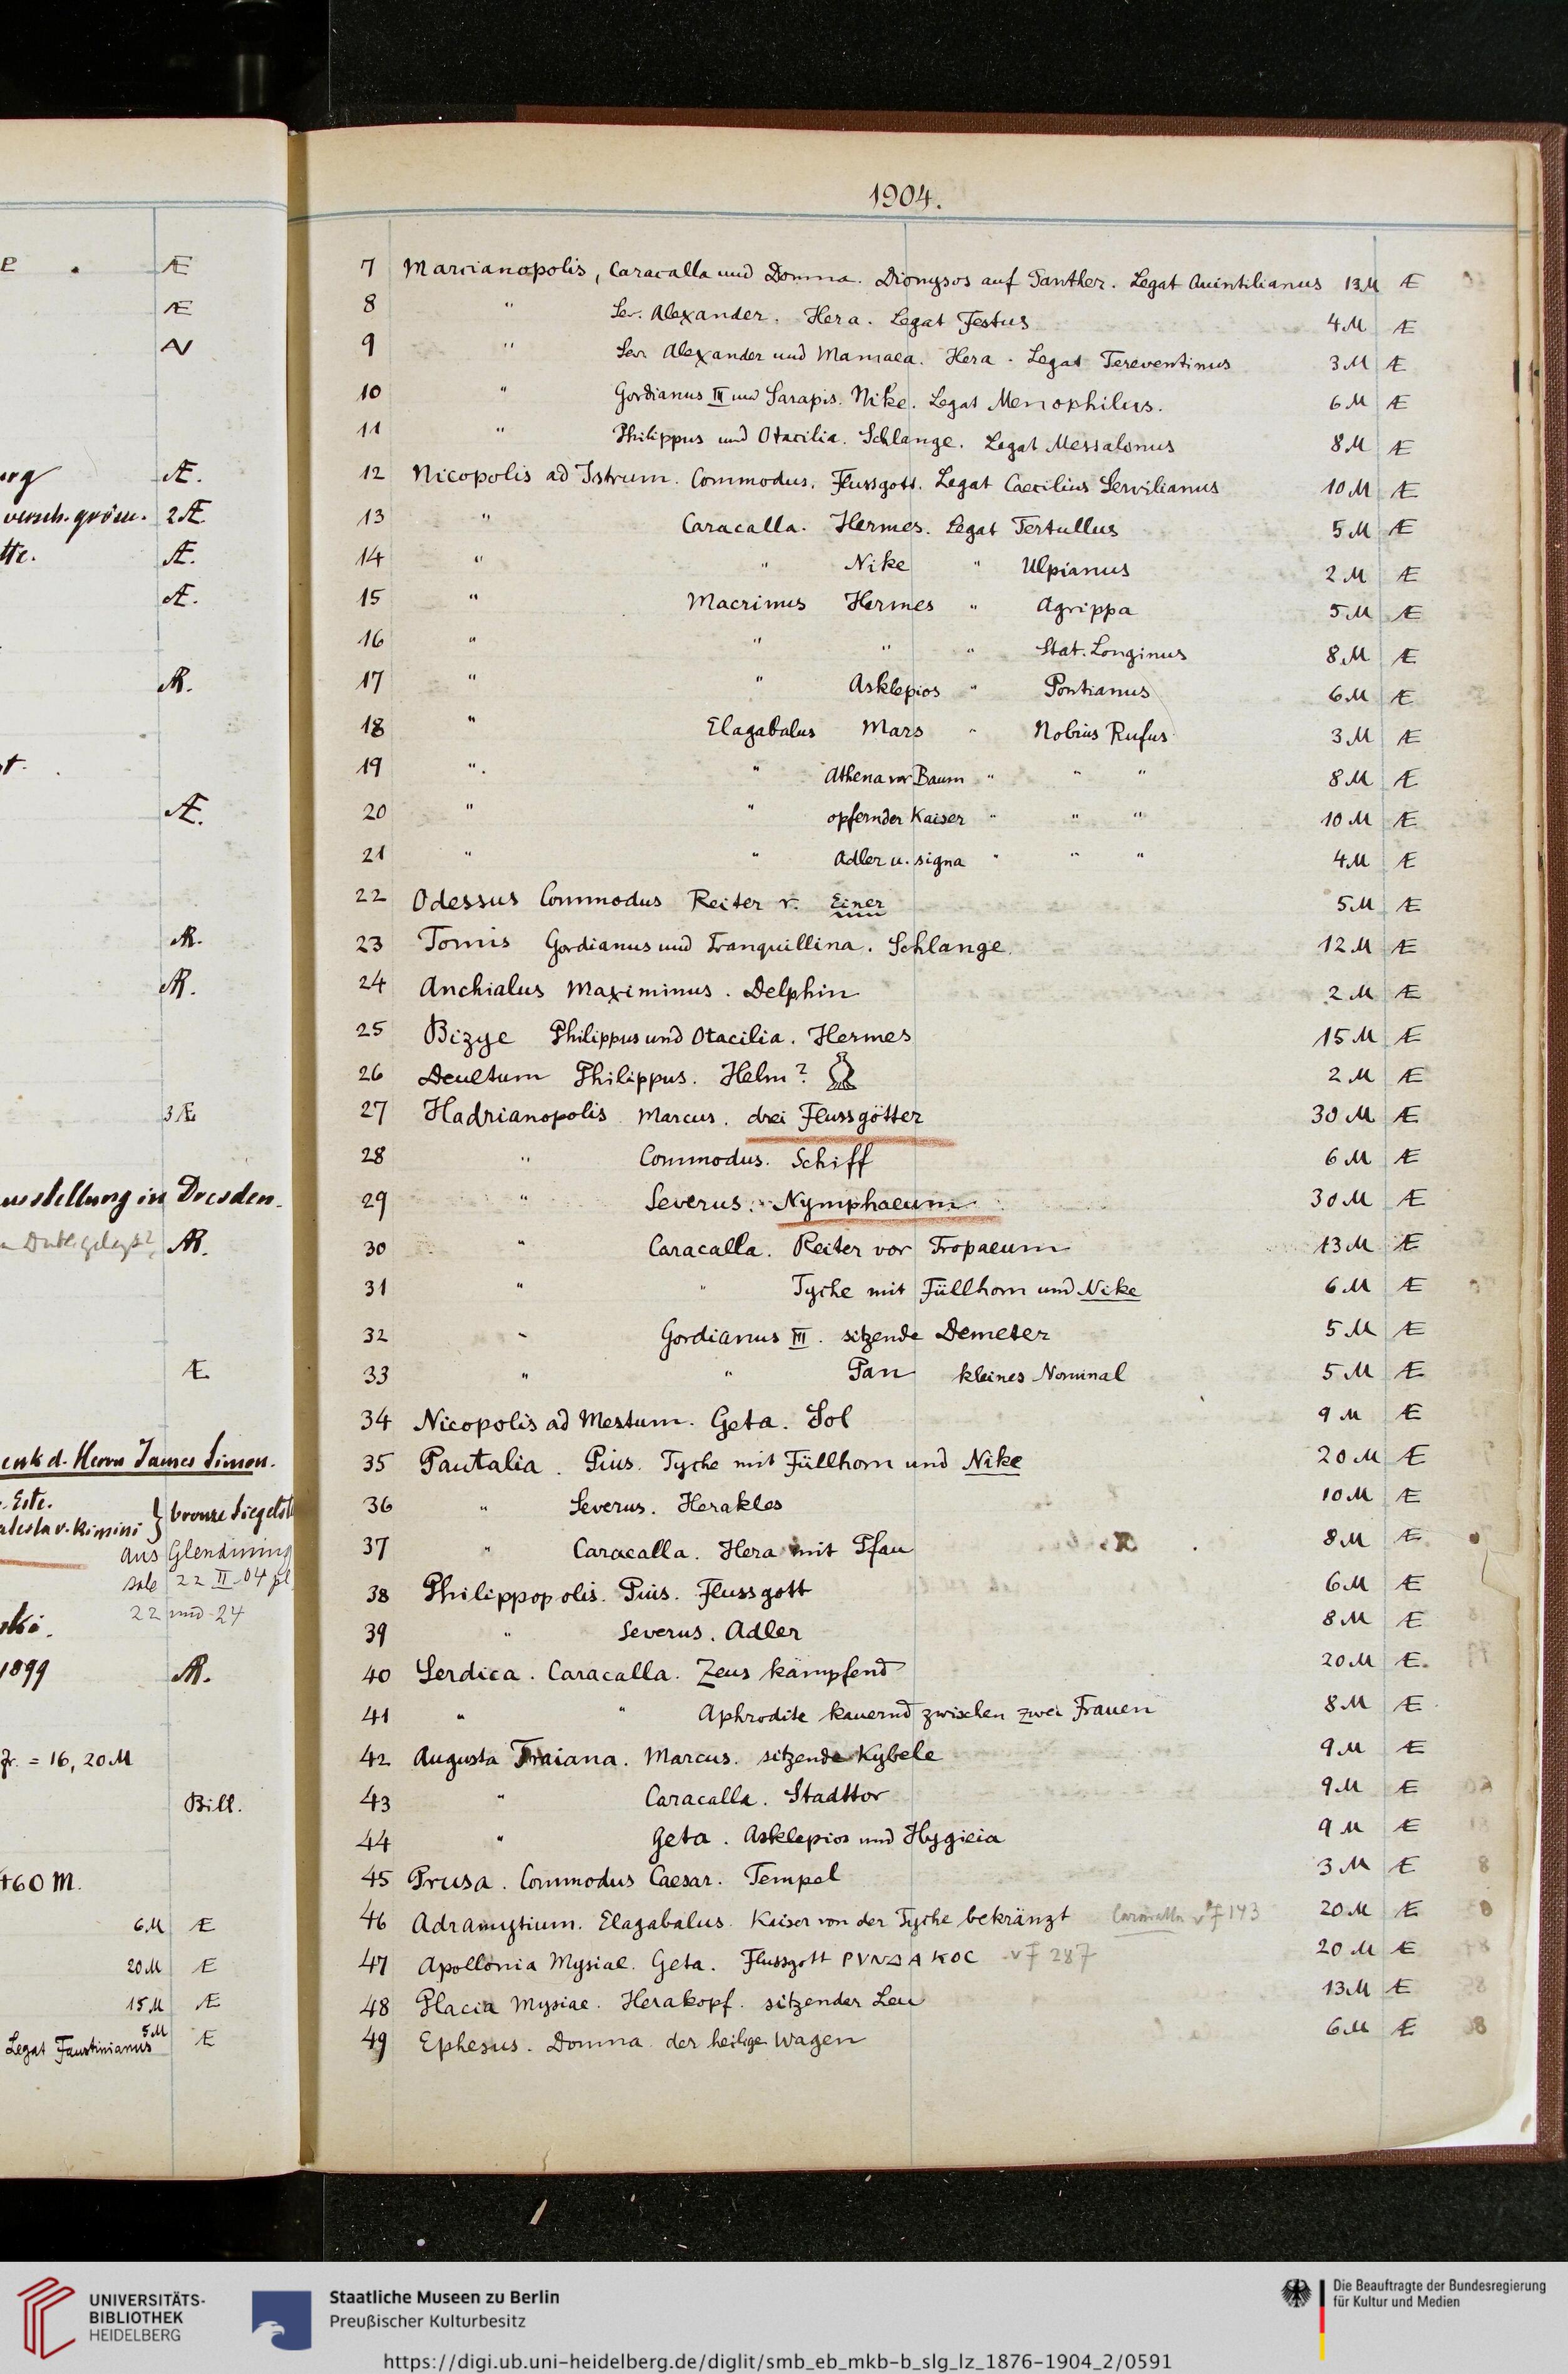 Æ
Æ
N
Æ.
versch. 2Æ.
Æ.
Æ.
AR.
Æ.
AR.
AR.
3Æ
in Dresden.
AR.
Æ
d. Herrn James Simon.
v. Rimini } bronze
aus Glendining
sale 22 II-04 pl
22 und 24
1899 AR.
= 16,20 M
Bill.
460 M.
6M Æ
20M Æ
15M Æ
5M
Legat Faustinianus Æ
1904.
7 Marcianopolis, Caracalla und Domna. Dionysos auf Panther. Legat Quintilianus 13M Æ
8 " Sev. Alexander. Hera. Legat Festus 4M Æ
9 " Sev. Alexander und Mamaea. Hera. Legat Tereventinus 3M Æ
10 " Gordianus III und Sarapis. Nike. Legat Menophilus. 6M Æ
11 " Philippus und Otacilia. Schlange. Legat Messalonus 8M Æ
12 Nicopolis ad Istrum. Commodus. Flussgott. Legat Caecilius Servilianus 10M Æ
13 " Caracalla. Hermes. Legat Tertullus 5M Æ
14 " " Nike " Ulpianus 2M Æ
15 " Macrinus Hermes " Agrippa 5M Æ
16 " " " " Stat. Longinus 8M Æ
17 " " Asklepios " Pontianus 6M Æ
18 " Elagabalus Mars " Nobius Rufus 3M Æ
19 " " Athena vor Baum " " " 8M Æ
20 " " opfernder Kaiser " " " 10M Æ
21 " " Adler u. signa " " " 4M Æ
22 Odessus Commodus Reiter r. Einer 5M Æ
23 Tomis Gordianus und Tranquillina. Schlange. 12M Æ
24 Anchialus Maximinus. Delphin 2M Æ
25 Bizye Philippus und Otacilia. Hermes 15M Æ
26 Deultum Philippus. Helm? 2M Æ
27 Hadrianopolis Marcus. drei Flussgötter 30M Æ
28 " Commodus. Schiff 6M Æ
29 " Severus. Nymphaeum 30M Æ
30 " Caracalla. Reiter vor Tropaeum 13M Æ
31 " " Tyche mit Füllhorn und Nike 6M Æ
32 " Gordianus III. sitzende Demeter 5M Æ
33 " " Pan kleines Nominal 5M Æ
34 Nicopolis ad Mestum. Geta. Sol 9M Æ
35 Pautalia. Pius. Tyche mit Füllhorn und Nike 20M Æ
36 " Severus. Herakles 10M Æ
37 " Caracalla. Hera mit Pfau 8M Æ
38 Philippopolis. Pius. Flussgott 6M Æ
39 " Severus. Adler 8M Æ
40 Serdica. Caracalla. Zeus kämpfend 20M Æ.
41 " " Aphrodite kauernd zwischen zwei Frauen 8M Æ
42 Augusta Traiana. Marcus. sitzende Kybele 9M Æ
43 " Caracalla. Stadttor 9M Æ
44 " Geta. Asklepios und Hygieia 9M Æ
45 Prusa. Commodus Caesar. Tempel 3M Æ
46 Adramytium. Elagabalus. Kaiser von der Tyche bekränzt Caracalla vF 143 20M Æ
47 Apollonia Mysiae. Geta. Flussgott ΡVΝΔΑΚΟC vF 287 20M Æ
48 Placia Mysiae. Herakopf. sitzender Leu 13M Æ
49 Ephesus. Domna der heilige Wagen 6M Æ
UNIVERSITÄTS-
BIBLIOTHEK
HEIDELBERG
Staatliche Museen zu Berlin
Preußischer Kulturbesitz
Die Beauftragte der Bundesregierung
für Kultur und Medien
https://digi.ub.uni-heidelberg.de/diglit/smb_eb_mkb-b_slg_lz_1876-1904_2/0591